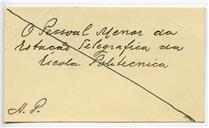 O Pessoal Menor da
Estação Telegrafica da
Escola Politecnica
A. P.